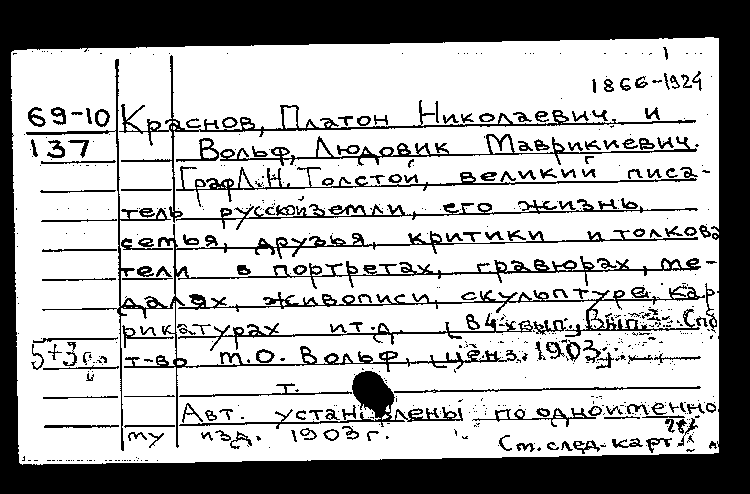 1866-1924
69-10 Краснов, Платон Николаевич. и
137 Вольф, Людовик Маврикиевич.
Граф Л.Н. Толстой, великий писа-
тель русской земли, его жизнь,
семья, друзья, критики и толкова
тели в портретах, гравюрах, ме-
далях, живописи, скульптуре, кар-
рикатурах и т.д. [В 4-х вып., Вып. Спб
5+3 т-во М.О. Вольф, [ценз. 1903].
т.
Авт. установлены по одноименно
му изд. 1903 г.
См. след. карт.